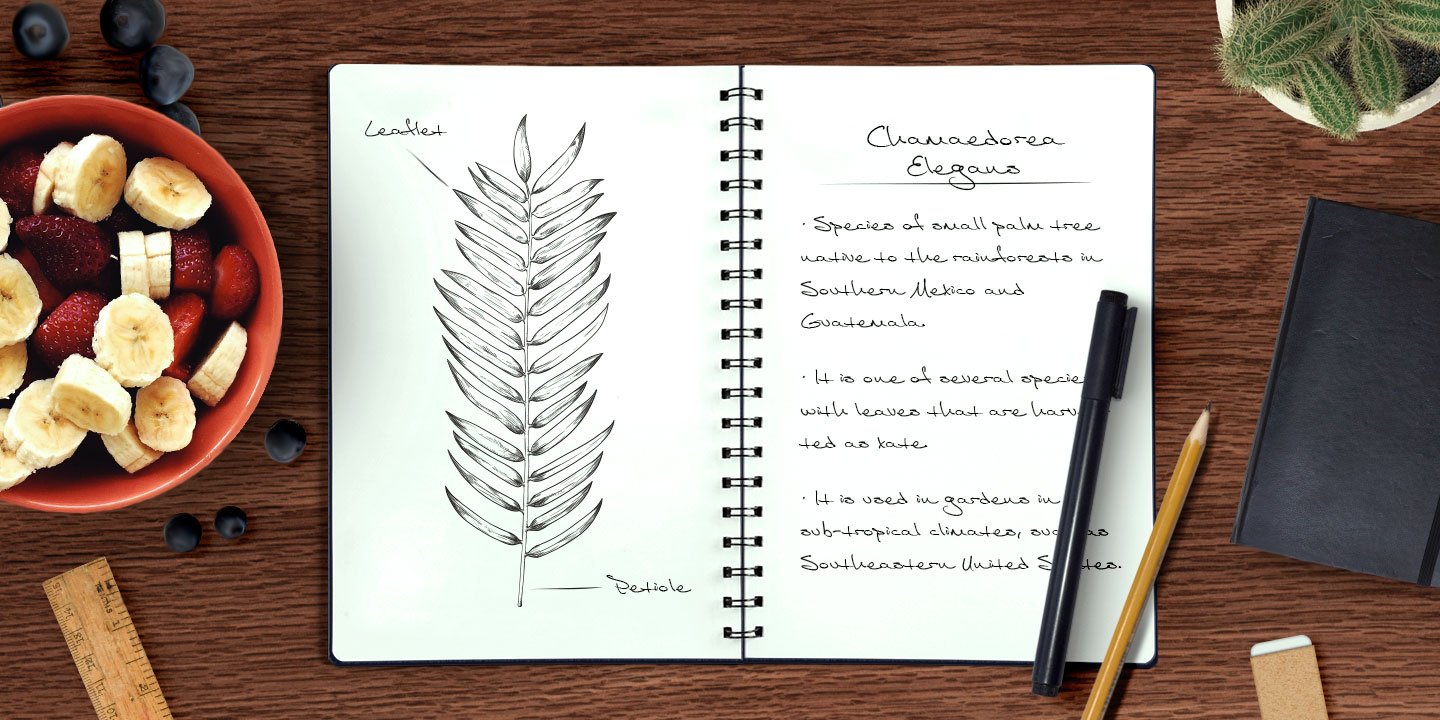 Leaflet
Petiole
Chamaedorea
Elegans
· Species of small palm tree
native to the rainforests in
Southern Mexico and
Guatemala.
· It is one of several species
with leaves that are harv
ted as xate.
· It is used in gardens in
sub-tropical climates, such as
Southeastern United States.